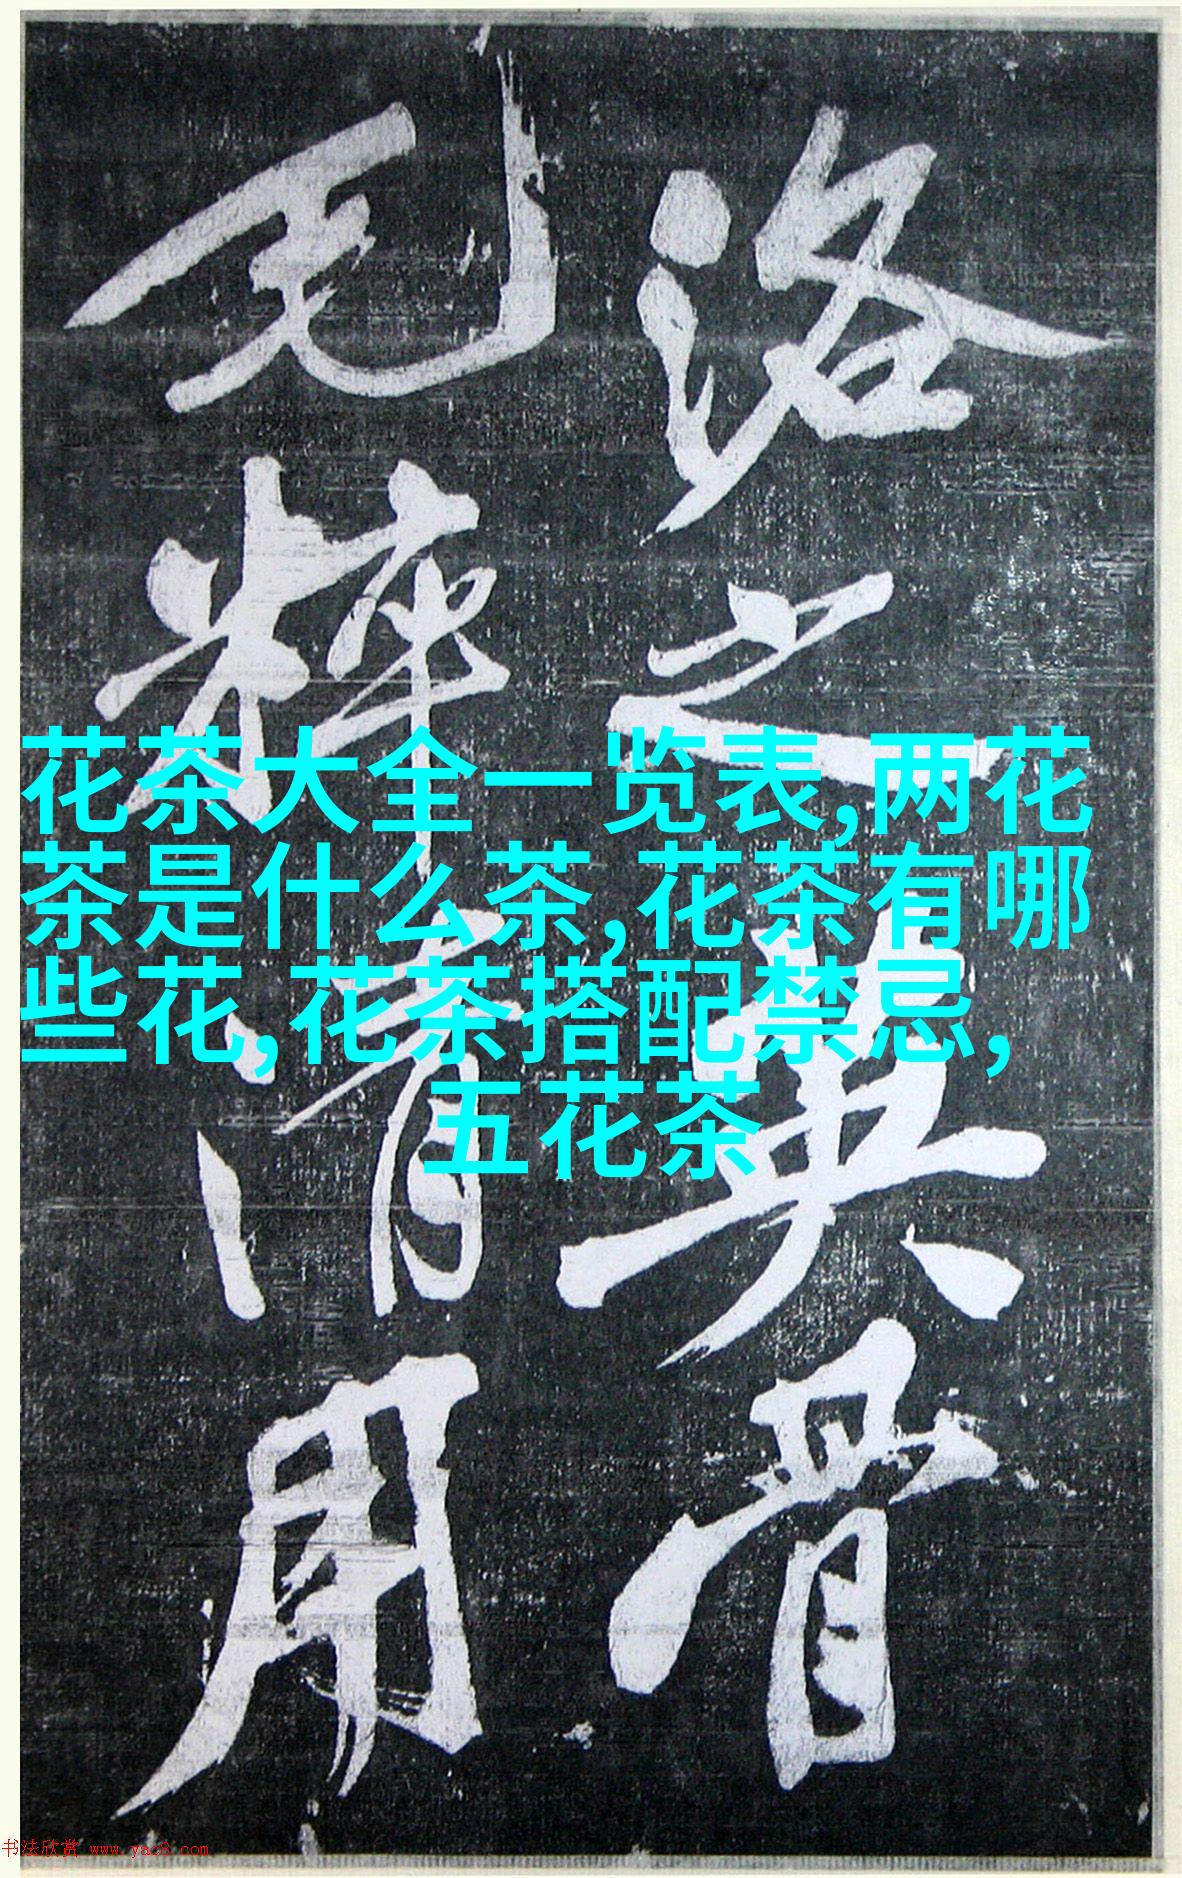 洛之英骨
毛粹清用
花茶大全一览表,两花
茶是什么茶,花茶有哪
些花,花茶搭配禁忌,
五花茶
书法欣赏 www.yac8.com